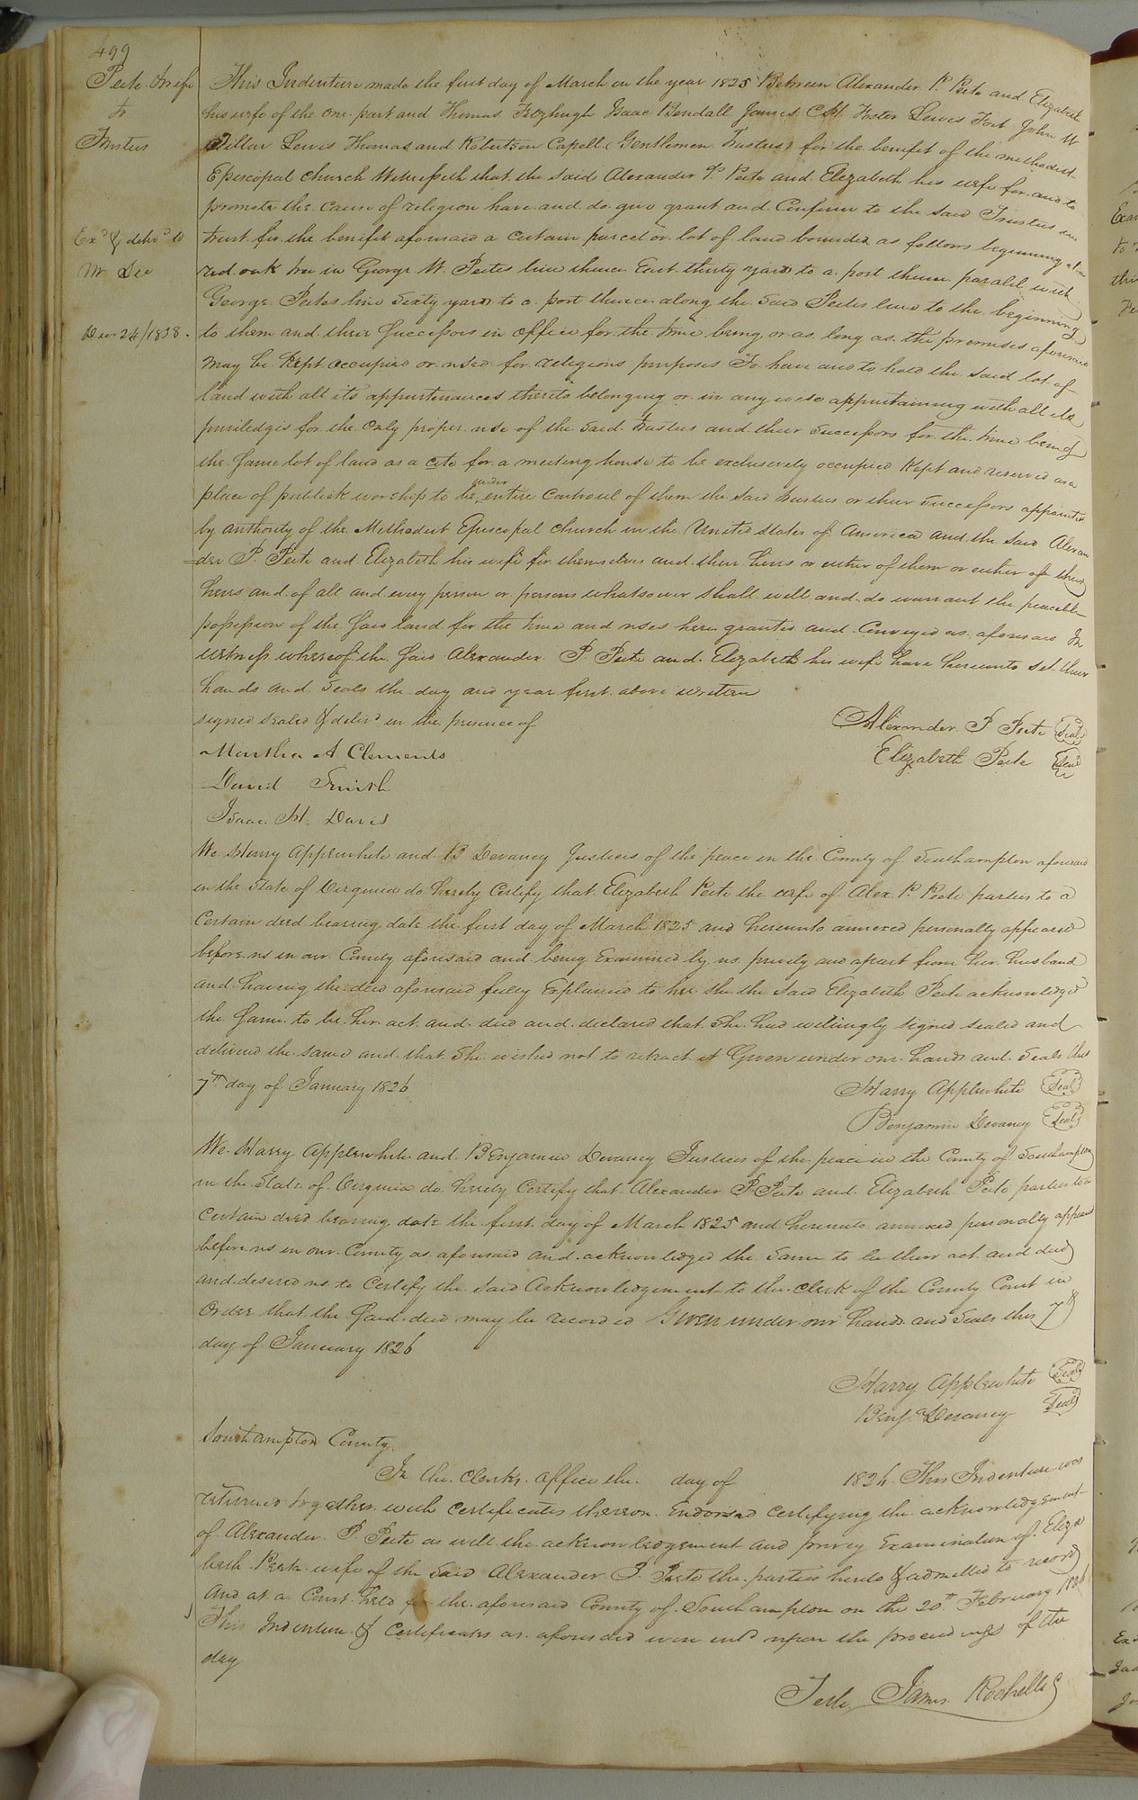 499
Peete & wife
to
Trustees
Exd & delivd to
Mr Lee
Decr 24/1838.
This Indenture made the first day of March in the year 1825 Between Alexander P. Peete and Elizabeth
his wife of the one part and Thomas Fitzhugh Isaac Kendall James C. H. Foster Lewis Fort John W
Dillar Lewis Thomas and Robertson Capell (Gentlemen Trustees) for the benifit of the methodist
Episcopal Church Witnesseth that the said Alexander P. Peete and Elizabeth his wife for and to
promote the cause of religion have and do give grant and Confirm to the said Trustees in
trust for the benifit aforesaid a certain parcel or lot of land bounded as follows beginning at a
red oak tree in George W. Peetes line thence East thirty yards to a post thence paralel with
George Peetes line Sixty yards to a post thence along the said Peetes line to the beginning
to them and their successors in office for the time being or as long as the premises aforesaid
may be Kept occupied or used for religious purposes To have and to hold the said lot of
land with all its appurtenances thereto belonging or in any wise appurtaining with all its
priviledges for the only proper use of the said Trustees and their Successors for the time being
the same lot of land as a cite for a meeting house to be exclusively occupied Kept and reserved as a
place of publick worship to be under entire Controul of them the said Trustees or their Successors appointed
by authority of the Methodist Episcopal Church in the United States of America and the said Alexan
=der P. Peete and Elizabeth his wife for themselves and their heirs or either of them or either of their
heirs and of all and every person or persons whatsoever shall well and do warrant the peacable
possession of the said land for the time and uses here granted and Conveyed as aforesaid In
witness whereof the said Alexander P Peete and Elizabeth his wife have hereunto set their
hands and seals the day and year first above written
signed sealed & delivd in the presence of
Alexander P Peete Seal
Martha A Clements
Elizabeth Peete Seal
David Smith
Isaac H. Davis
We Harry Applewhite and B Devaney Justices of the peace in the County of Southampton aforesaid
in the State of Virginia do hereby Certify that Elizabeth Peete the wife of Alex P. Peete parties to a
Certain deed bearing date the first day of March 1825 and hereunto annexed personally appeared
before us in our County aforesaid and being Examined by us privily and apart from her husband
and having the deed aforesaid fully Explained to her she the said Elizabeth Peete acknowledged
the same to be her act and deed and declared that she had willingly signed sealed and
delivered the same and that she wished not to retract it Given under our hands and seals this
7th day of January 1826
Harry Applewhite Seal
Benjamin Devaney Seal
We Harry Applewhite and Benjamin Devaney Justices of the peace in the County of Southampton
in the State of Virginia do hereby Certify that Alexander P Peete and Elizabeth Peete parties to a
Certain deed bearing date the first day of March 1825 and hereunto annexed personally appeared
before us in our County as aforesaid and acknowledged the same to be their act and deed
and desired us to Certify the said Acknowledgement to the clerk of the County Court in
Order that the said deed may be recorded Given under our hands and seals this 7th
day of January 1826
Harry Applewhite Seal
Benja Devaney Seal
Southampton County
In the Clerks office the day of 1826 This Indenture was
returned together with Certificates thereon Endorsed Certifying the acknowledgement
of Alexander P. Peete as well the acknowledgement and privy Examination of Eliza
beth Peete wife of the said Alexander P. Peete the parties hereto & admitted to record
And at a Court held for the aforesaid County of Southampton on the 20th February 1826
This Indenture & Certificates as aforesaid were entd upon the proceedings of the
day
Teste James Rochelle C